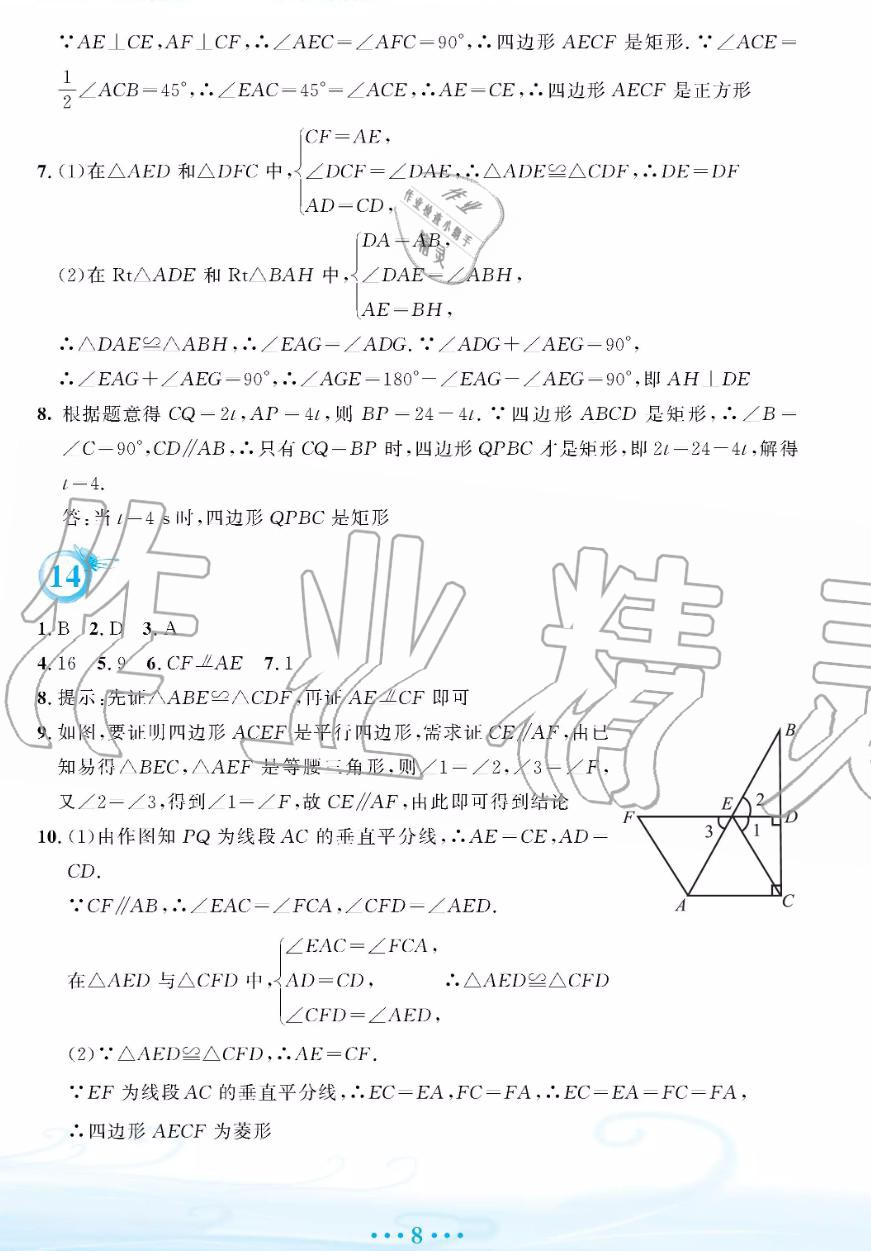 ∵AE⊥CE,AF⊥CF,∴∠AEC=∠AFC=90°,∴四边形 AECF 是矩形.∵∠ACE=
1/2∠ACB=45°,∴∠EAC=45°=∠ACE,∴AE=CE,∴四边形 AECF 是正方形
CF=AE,
7.(1)在△AED 和△DFC 中,{∠DCF=∠DAE,∴△ADE≌△CDF,∴DE=DF
AD=CD,
DA=AB,
(2)在 Rt△ADE 和 Rt△BAH 中,{∠DAE=∠ABH,
AE=BH,
∴△DAE≌△ABH,∴∠EAG=∠ADG.∵∠ADG+∠AEG=90°,
∴∠EAG+∠AEG=90°,∴∠AGE=180°-∠EAG-∠AEG=90°,即 AH⊥DE
8. 根据题意得 CQ=2t,AP=4t,则 BP=24-4t.∵四边形 ABCD 是矩形,∴∠B=
∠C=90°,CD∥AB,∴只有 CQ=BP 时,四边形 QPBC 才是矩形,即 2t=24-4t,解得
t=4.
答:当 t=4 s 时,四边形 QPBC 是矩形
14
1.B 2.D 3.A
4.16 5.9 6.CF⫫AE 7.1
8.提示:先证△ABE≌△CDF,再证 AE⫫CF 即可
9.如图,要证明四边形 ACEF 是平行四边形,需求证 CE∥AF,由已
知易得△BEC,△AEF 是等腰三角形,则∠1=∠2,∠3=∠F,
又∠2=∠3,得到∠1=∠F,故 CE∥AF,由此即可得到结论
B
E 2
F 3 1 D
A C
10.(1)由作图知 PQ 为线段 AC 的垂直平分线,∴AE=CE,AD=
CD.
∵CF∥AB,∴∠EAC=∠FCA,∠CFD=∠AED.
∠EAC=∠FCA,
在△AED 与△CFD 中,{AD=CD, ∴△AED≌△CFD
∠CFD=∠AED,
(2)∵△AED≌△CFD,∴AE=CF.
∵EF 为线段 AC 的垂直平分线,∴EC=EA,FC=FA,∴EC=EA=FC=FA,
∴四边形 AECF 为菱形
作业
作业检查小助手
精灵
作业精灵
···8···